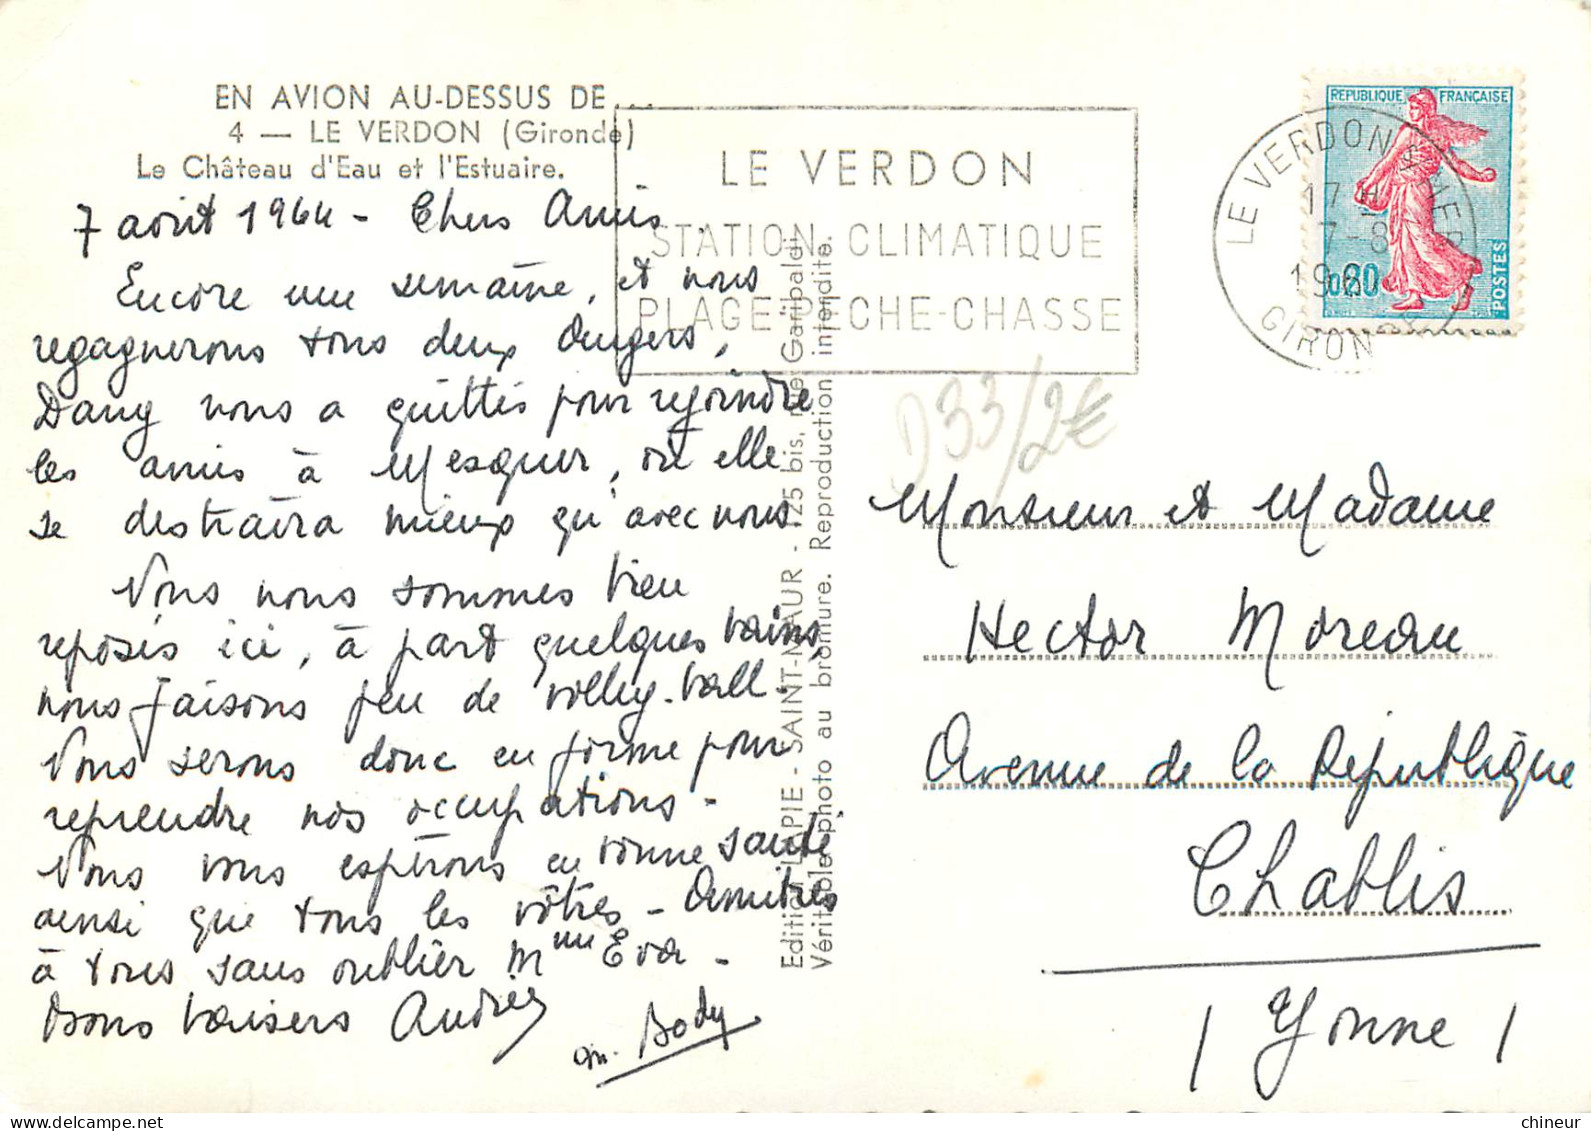 EN AVION AU-DESSUS DE ...
4 — LE VERDON (Gironde)
Le Château d'Eau et l'Estuaire.
7 août 1964 - Chers Amis
Encore une semaine, et nous
regagnerons tous deux Angers,
Dany nous a quittés pour rejoindre
les amis à Mesquer, où elle
se destraira mieux qu'avec nous.
Nous nous sommes bien
reposés ici, à part quelques bains,
nous faisons peu de volley-ball.
Nous serons donc en forme pour
reprendre nos occupations -
Nous vous espérons en bonne santé
ainsi que tous les vôtres - Amitiés
à tous sans oublier Mme Eva -
Bons baisers Andrée
Body
Edition LAPIE - SAINT-MAUR - 125 bis, rue Garibaldi
Véritable photo au bromure. Reproduction interdite.
LE VERDON
STATION CLIMATIQUE
PLAGE-PECHE-CHASSE
REPUBLIQUE FRANÇAISE
0,20
POSTES
LE VERDON S/MER
17 H
7-8
GIRONDE
D33/2€
Monsieur et Madame
Hector Moreau
Avenue de la République
Chablis
(Yonne)
chineur